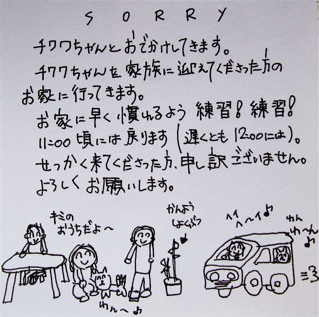 SORRY
チワワちゃんとおでかけしてきます。
チワワちゃんを家族に迎えてくださった方の
お家に行ってきます。
お家に早く慣れるよう練習!練習!
11:00頃には戻ります(遅くとも12:00には)。
せっかく来てくださった方、申し訳ございません。
よろしくお願いします。
キミの
おうちだよ〜
かんよう
しょくぶつ
ヘイ
ヘ〜イ♪
わん
わ〜ん♪
わん〜♪